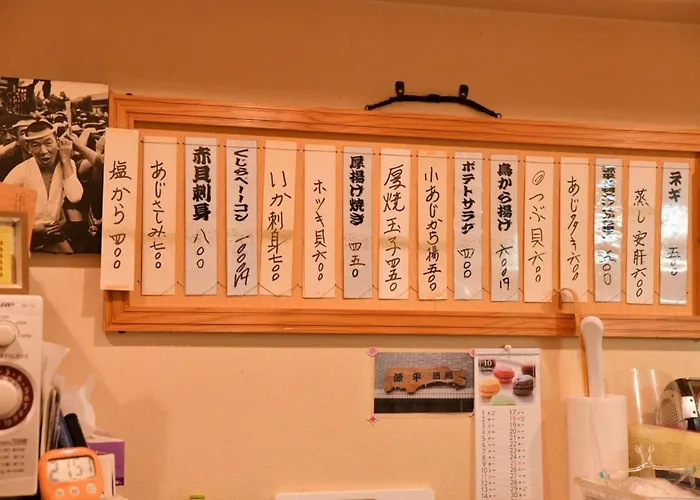 ネギ 五〇〇
蒸し安肝 六〇〇
あじタタキ 六〇〇
つぶ貝 六〇〇
鳥から揚げ 六〇〇円
ポテトサラダ 四〇〇
小あじから揚 五〇〇
厚焼玉子 四五〇
厚揚げ焼き 四五〇
ホッキ貝 六〇〇
いか刺身 七〇〇
くじらベーコン 一〇〇〇円
赤貝刺身 八〇〇
あじさしみ 七〇〇
塩から 四〇〇
源平
10
21:57